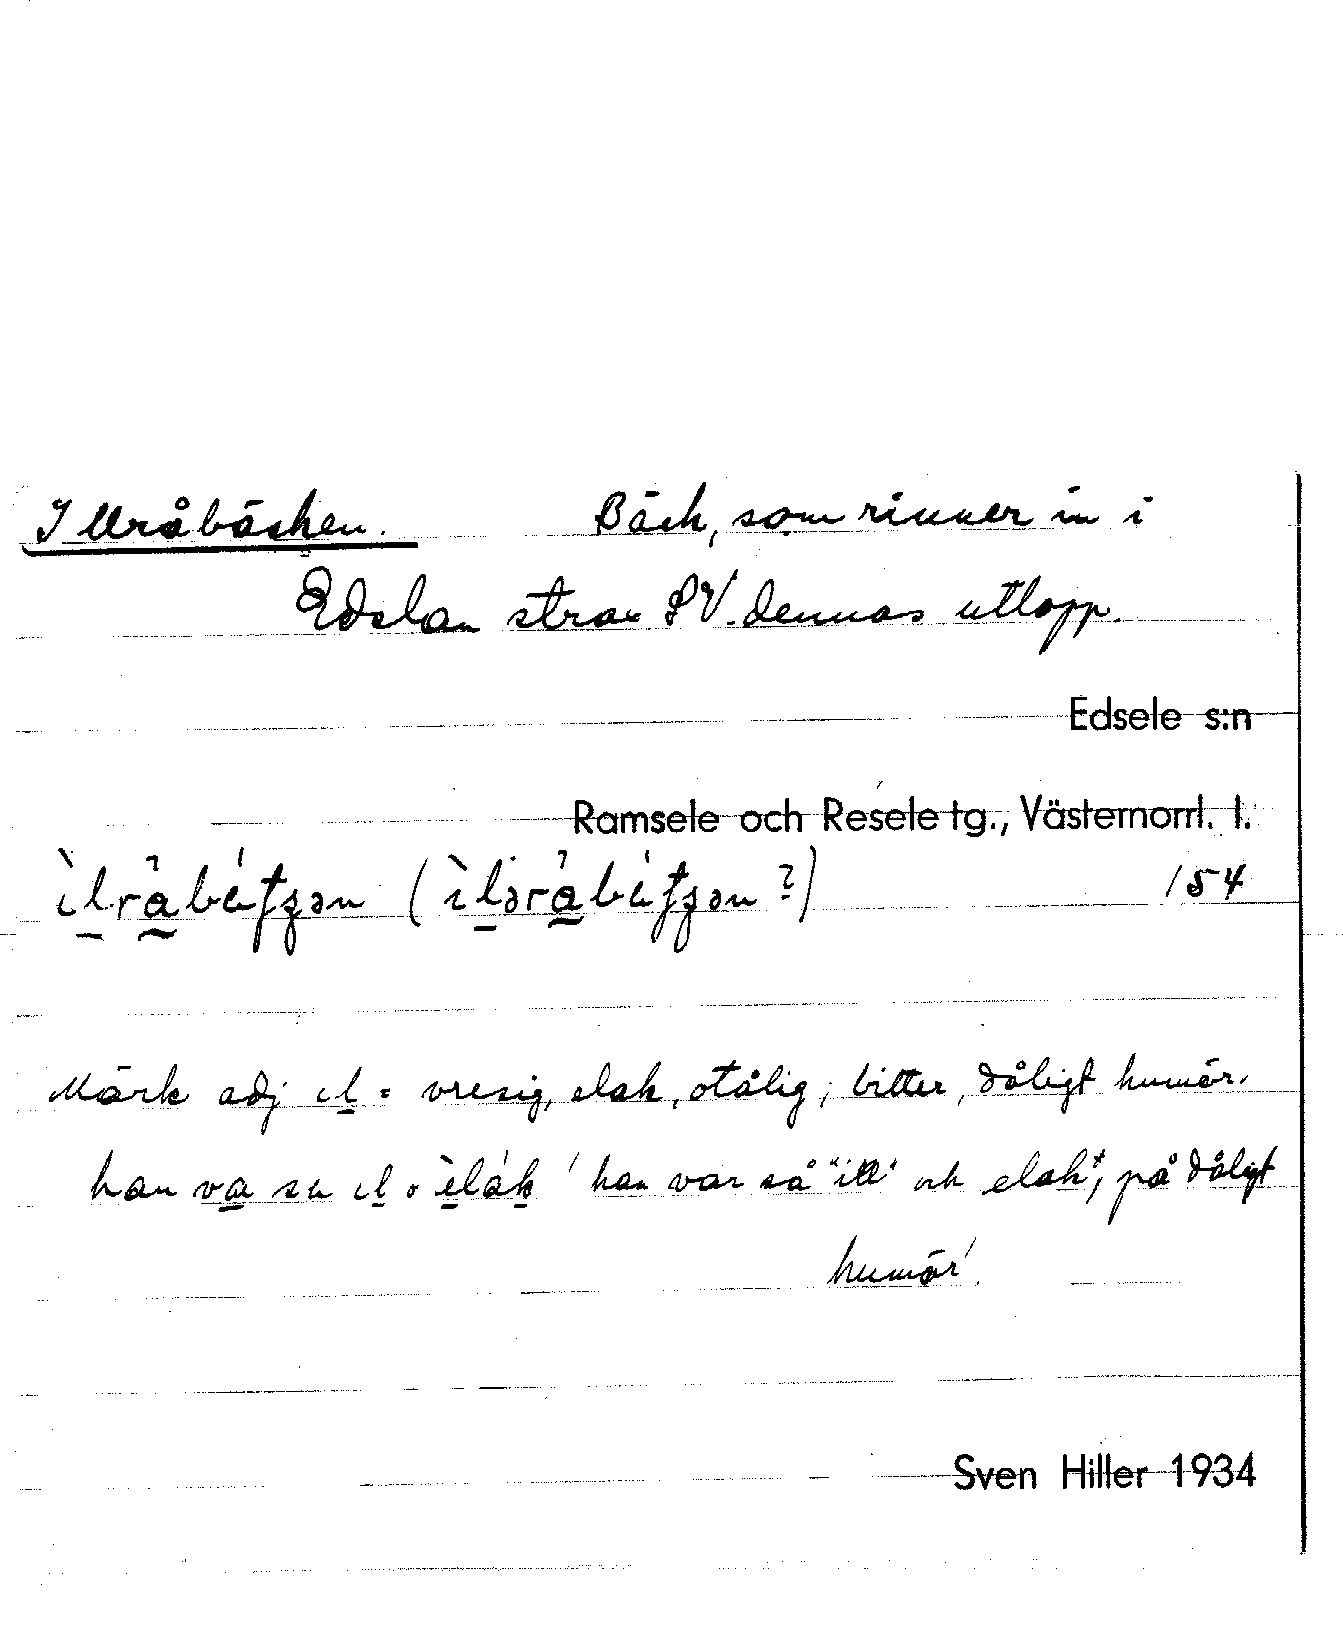 Illråbäcken. Bäck, som rinner in i
Edslan strax SV. dennas utlopp.
Edsele s:n
Ramsele och Resele tg., Västernorrl. l.
154
Märk adj il = vresig, elak, otålig, bitter, dåligt humör.
han va su il o elak ' han var så "ill" och elak", på dåligt
humör'.
Sven Hiller 1934